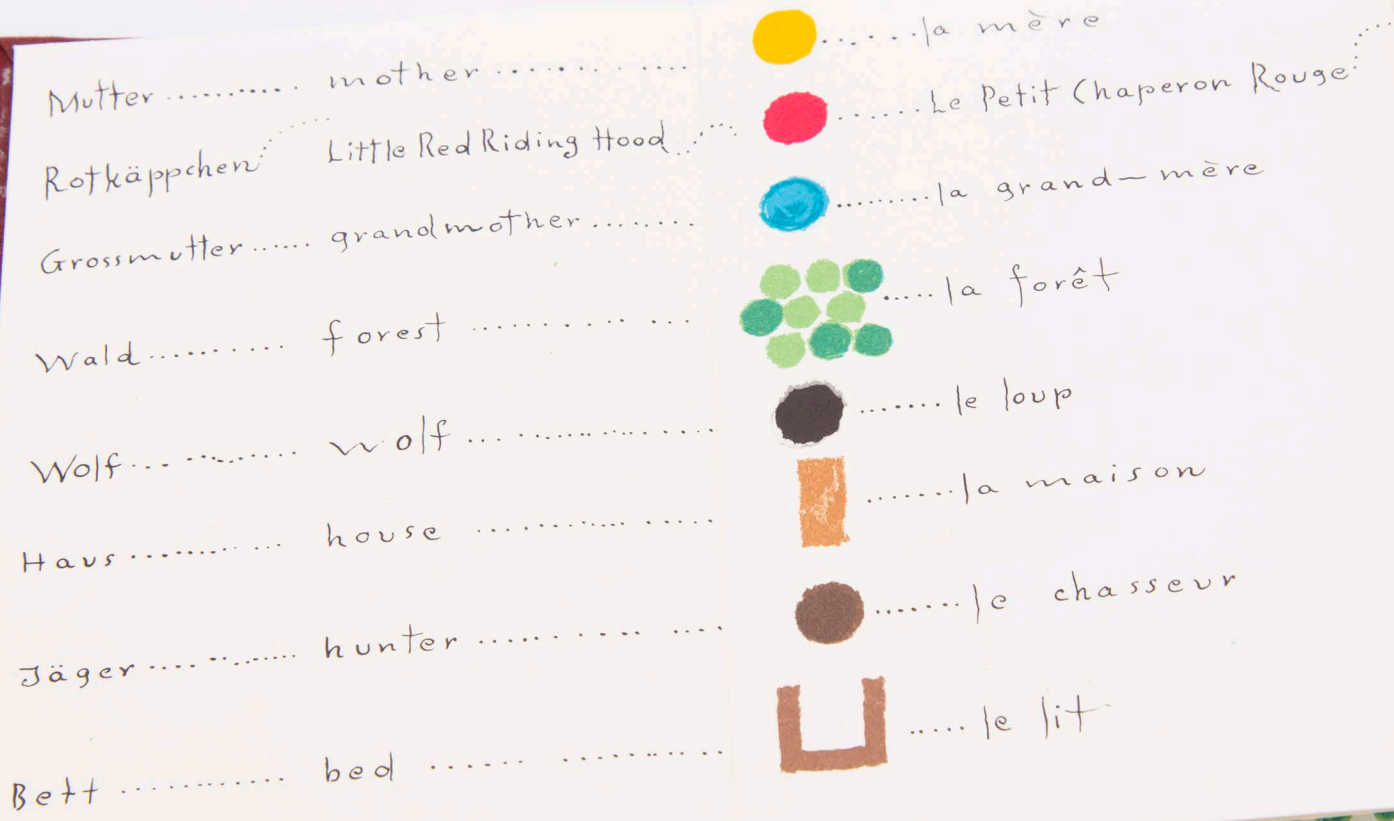 Mutter ........... mother ........... ......la mère
Rotkäppchen ........ Little Red Riding Hood ....... .......Le Petit Chaperon Rouge ......
Grossmutter ...... grandmother ........ .........la grand-mère
Wald .......... forest ........... .....la forêt
Wolf ............. wolf ................ .......le loup
Haus ............ house ................ .......la maison
Jäger ............. hunter ............. .......le chasseur
Bett ............ bed ................ .....le lit